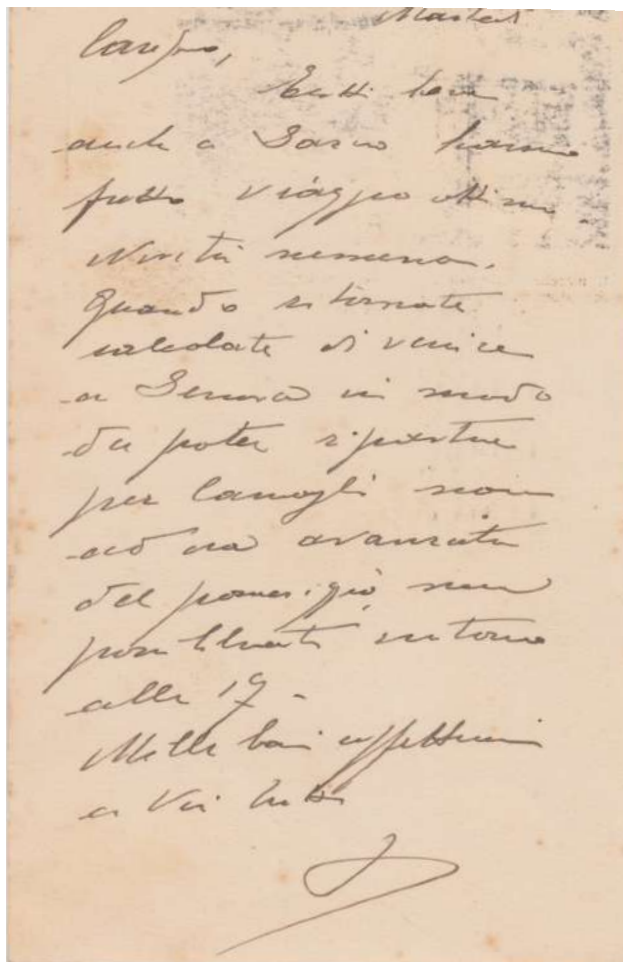 Martedì
Carissimo,
Tutti bene
anche a Sasso hanno
fatto viaggio ottimo
Novità nessuna.
Quando ritornate
calcolate di venire
a Genova in modo
da poter ripartire
per Camogli non
ad ora avanzata
del pomeriggio ma
possibilmente intorno
alle 17 -
Mille baci affettuosi
a Voi tutti